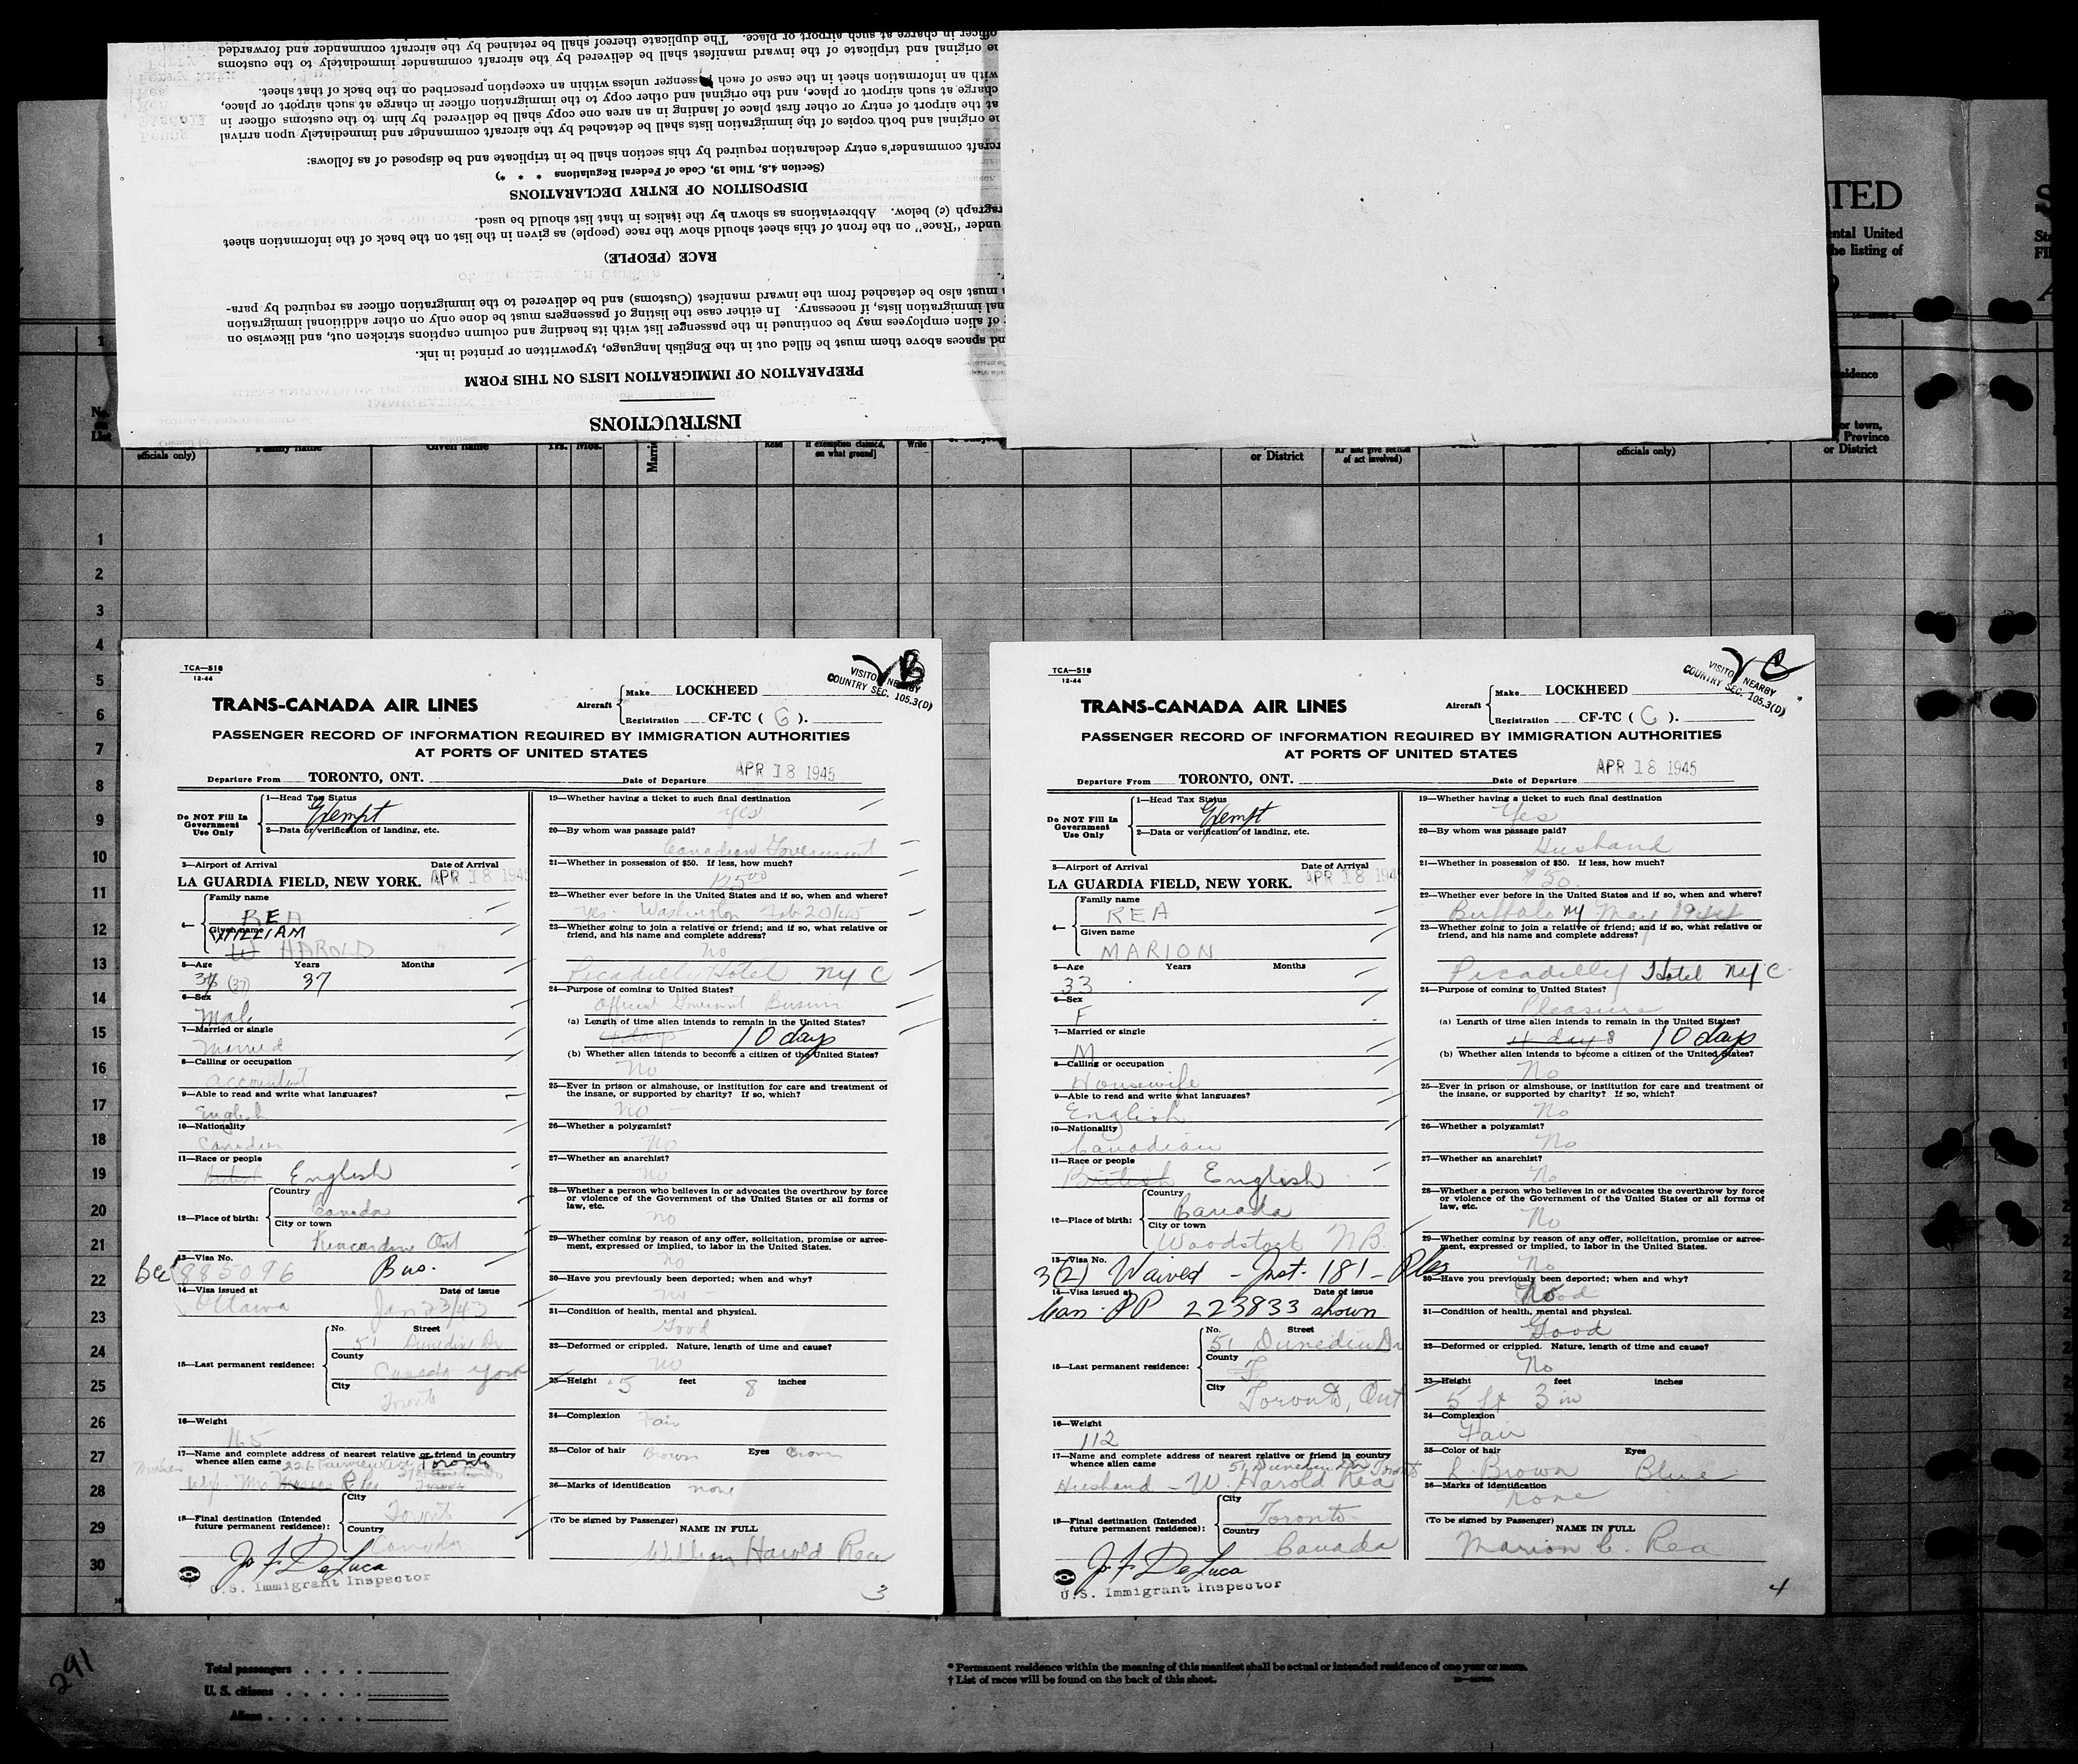 officer in charge at such airport or place. The duplicate thereof shall be retained by the aircraft commander and forwarded
original and triplicate of the inward manifest shall be delivered by the aircraft commander immediately to the customs
with an information sheet in the case of each passenger unless within an exception prescribed on the back of that sheet.
charge at such airport or place, and the original and other copy to the immigration officer in charge at such airport or place,
at the airport of entry or other first place of landing in an area one copy shall be delivered by him to the customs officer in
original and both copies of the immigration lists shall be detached by the aircraft commander and immediately upon arrival
commander's entry declaration required by this section shall be in triplicate and be disposed of as follows:
(Section 4.8, Title 19, Code of Federal Regulations * * *)
DISPOSITION OF ENTRY DECLARATIONS
(c) below. Abbreviations as shown by the italics in that list should be used.
under "Race" on the front of this sheet should show the race (people) as given in the list on the back of the information sheet
RACE (PEOPLE)
must also be detached from the inward manifest (Customs) and be delivered to the immigration officer as required by para-
immigration lists, if necessary. In either case the listing of passengers must be done only on other additional immigration
of alien employees may be continued in the passenger list with its heading and column captions stricken out, and likewise on
spaces above them must be filled out in the English language, typewritten or printed in ink.
PREPARATION OF IMMIGRATION LISTS ON THIS FORM
INSTRUCTIONS
TED
ental United
he listing of
sidence
or town,
Province
or District
officials only)
Family name
Given name
Yrs. Mos.
Read
if exemption claimed,
on what ground]
Write
or District
of act involved)
officials only)
1
2
3
4
5
6
7
8
9
10
11
12
13
14
15
16
17
18
19
20
21
22
23
24
25
26
27
28
29
30
TCA—518
12-44
B
VISITOR NEARBY
COUNTRY SEC. 105.3(D)
TRANS-CANADA AIR LINES
Aircraft
Make LOCKHEED
Registration CF-TC ( G ).
PASSENGER RECORD OF INFORMATION REQUIRED BY IMMIGRATION AUTHORITIES
AT PORTS OF UNITED STATES
Departure From TORONTO, ONT. Date of Departure APR 18 1945
Do NOT Fill In
Government
Use Only
1—Head Tax Status
Exempt
2—Data or verification of landing, etc.
3—Airport of Arrival Date of Arrival
LA GUARDIA FIELD, NEW YORK. APR 18 194
4—
Family name
REA
Given name
WILLIAM
W HAROLD
5—Age Years Months
(37) 37
6—Sex
Male
7—Married or single
Married
8—Calling or occupation
accountant
9—Able to read and write what languages?
English
10—Nationality
Canadian
11—Race or people
British English
12—Place of birth:
Country
Canada
City or town
Kincardine Ont
13—Visa No.
885096 Bus.
14—Visa issued at Date of issue
Ottawa Jan 23/43
15—Last permanent residence:
No. Street
51 Dunedin Dr
County
Canada York
City
Toronto
16—Weight
165
17—Name and complete address of nearest relative or friend in country
whence alien came 226 Fairview Ave Toronto
Mother
18—Final destination (Intended
future permanent residence):
City
Toronto
Country
Canada
Jo. F. DeLuca
U.S. Immigrant Inspector
19—Whether having a ticket to such final destination
yes
20—By whom was passage paid?
Canadian Government
21—Whether in possession of $50. If less, how much?
125 00
22—Whether ever before in the United States and if so, when and where?
yes - Washington Feb 20/45
23—Whether going to join a relative or friend; and if so, what relative or
friend, and his name and complete address?
No
Picadilly Hotel NYC
24—Purpose of coming to United States?
Official Government Business
(a) Length of time alien intends to remain in the United States?
4 days 10 days
(b) Whether alien intends to become a citizen of the United States?
No
25—Ever in prison or almshouse, or institution for care and treatment of
the insane, or supported by charity? If so, which?
no —
26—Whether a polygamist?
No
27—Whether an anarchist?
No
28—Whether a person who believes in or advocates the overthrow by force
or violence of the Government of the United States or all forms of
law, etc.
no
29—Whether coming by reason of any offer, solicitation, promise or agree-
ment, expressed or implied, to labor in the United States.
no
30—Have you previously been deported; when and why?
no —
31—Condition of health, mental and physical.
Good
32—Deformed or crippled. Nature, length of time and cause?
no
33—Height 5 feet 8 inches
34—Complexion Fair
35—Color of hair Brown Eyes Brown
36—Marks of identification none
(To be signed by Passenger)
NAME IN FULL
William Harold Rea
3
TCA—518
12-44
C
VISITOR NEARBY
COUNTRY SEC. 105.3(D)
TRANS-CANADA AIR LINES
Aircraft
Make LOCKHEED
Registration CF-TC ( G ).
PASSENGER RECORD OF INFORMATION REQUIRED BY IMMIGRATION AUTHORITIES
AT PORTS OF UNITED STATES
Departure From TORONTO, ONT. Date of Departure APR 18 1945
Do NOT Fill In
Government
Use Only
1—Head Tax Status
Exempt
2—Data or verification of landing, etc.
3—Airport of Arrival Date of Arrival
LA GUARDIA FIELD, NEW YORK. APR 18 194
4—
Family name
REA
Given name
MARION
5—Age Years Months
33
6—Sex
F
7—Married or single
M
8—Calling or occupation
Housewife
9—Able to read and write what languages?
English
10—Nationality
Canadian
11—Race or people
British English
12—Place of birth:
Country
Canada
City or town
Woodstock N.B.
13—Visa No.
3(2) Waived - Inst. 181 - Ples
14—Visa issued at Date of issue
Can. PP 223833 shown
15—Last permanent residence:
No. Street
51 Dunedin Dr
County
City
Toronto, Ont
16—Weight
112
17—Name and complete address of nearest relative or friend in country
whence alien came 51 Dunedin Dr Toronto
Husband - W. Harold Rea
18—Final destination (Intended
future permanent residence):
City
Toronto
Country
Canada
Jo. F. DeLuca
U.S. Immigrant Inspector
19—Whether having a ticket to such final destination
Yes
20—By whom was passage paid?
Husband
21—Whether in possession of $50. If less, how much?
$50.
22—Whether ever before in the United States and if so, when and where?
Buffalo NY May 1944
23—Whether going to join a relative or friend; and if so, what relative or
friend, and his name and complete address?
Picadilly Hotel NYC
24—Purpose of coming to United States?
Pleasure
(a) Length of time alien intends to remain in the United States?
4 days 10 days
(b) Whether alien intends to become a citizen of the United States?
No
25—Ever in prison or almshouse, or institution for care and treatment of
the insane, or supported by charity? If so, which?
No
26—Whether a polygamist?
No
27—Whether an anarchist?
No
28—Whether a person who believes in or advocates the overthrow by force
or violence of the Government of the United States or all forms of
law, etc.
No
29—Whether coming by reason of any offer, solicitation, promise or agree-
ment, expressed or implied, to labor in the United States.
No
30—Have you previously been deported; when and why?
No
31—Condition of health, mental and physical.
Good
32—Deformed or crippled. Nature, length of time and cause?
No
33—Height feet inches
5 ft 3 in
34—Complexion
Fair
35—Color of hair Eyes
L. Brown Blue
36—Marks of identification
None
(To be signed by Passenger)
NAME IN FULL
Marion C. Rea
4
291
Total passengers . . . .
U. S. citizens . . . . .
Aliens . . . . . . .
* Permanent residence within the meaning of this manifest shall be actual or intended residence of one year or more.
† List of races will be found on the back of this sheet.